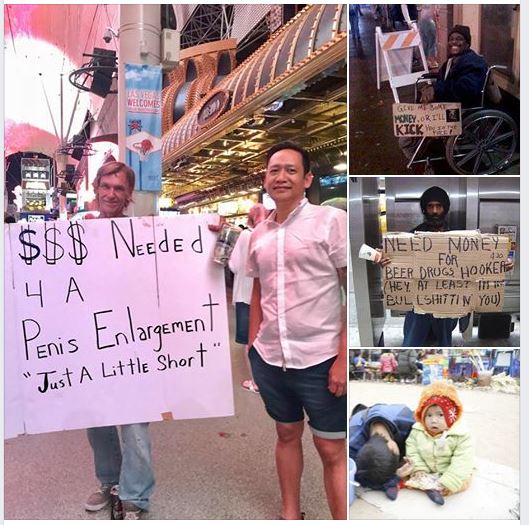 LAS VEGAS
WELCOMES
$$$ Needed
4 A
Penis Enlargement
"Just A Little Short"
GIVE ME SOME
MONEY, OR I'LL
KICK YOU IN THE
NEED MONEY
FOR
BEER DRUGS HOOKER
(HEY, AT LEAST I'M NOT
BULLSHITTIN YOU)